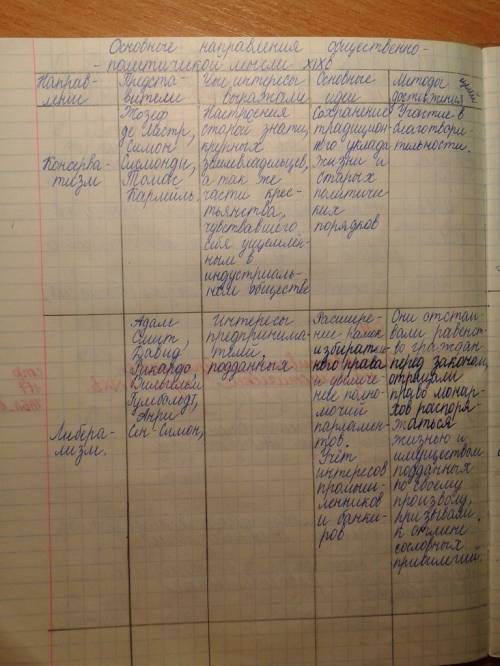 Основные направления общественно-
-политической мысли XIXв
Направ-
ление
Предста-
вители
Чьи интересы
выражали
Основные
идеи
Методы
достижения
идей
Консерва-
тизм
Жозеф
де Местр,
Симон
Сисмонди,
Томас
Карлейль.
Настроения
старой знати,
крупных
землевладельцев,
а так же
части крес-
тьянства,
чувствовавшего
себя ущемлён-
ным в
индустриаль-
ном обществе
Сохранение
традицион-
ного уклада
жизни и
старых
политичес-
ких
порядков
Участие в
благотвори
тельности.
Либера-
лизм.
Адам
Смит,
Давид
Рикардо,
Вильгельм
Гумбольдт,
Анри
Сен-Симон,
Интересы
предпринима-
телей.
подданных
Расшире-
ние рамок
избиратель-
ного права
и увеличе-
ние полно-
мочий
парламен-
тов.
Учёт
интересов
промыш-
ленников
и банки-
ров
Они отстаи-
вали равенст-
во граждан
перед законом,
отрицали
право монар-
хов распоря-
жаться
жизнью и
имуществом
подданных
по своему
произволу,
призывали
к отмене
сословных
привилегий.